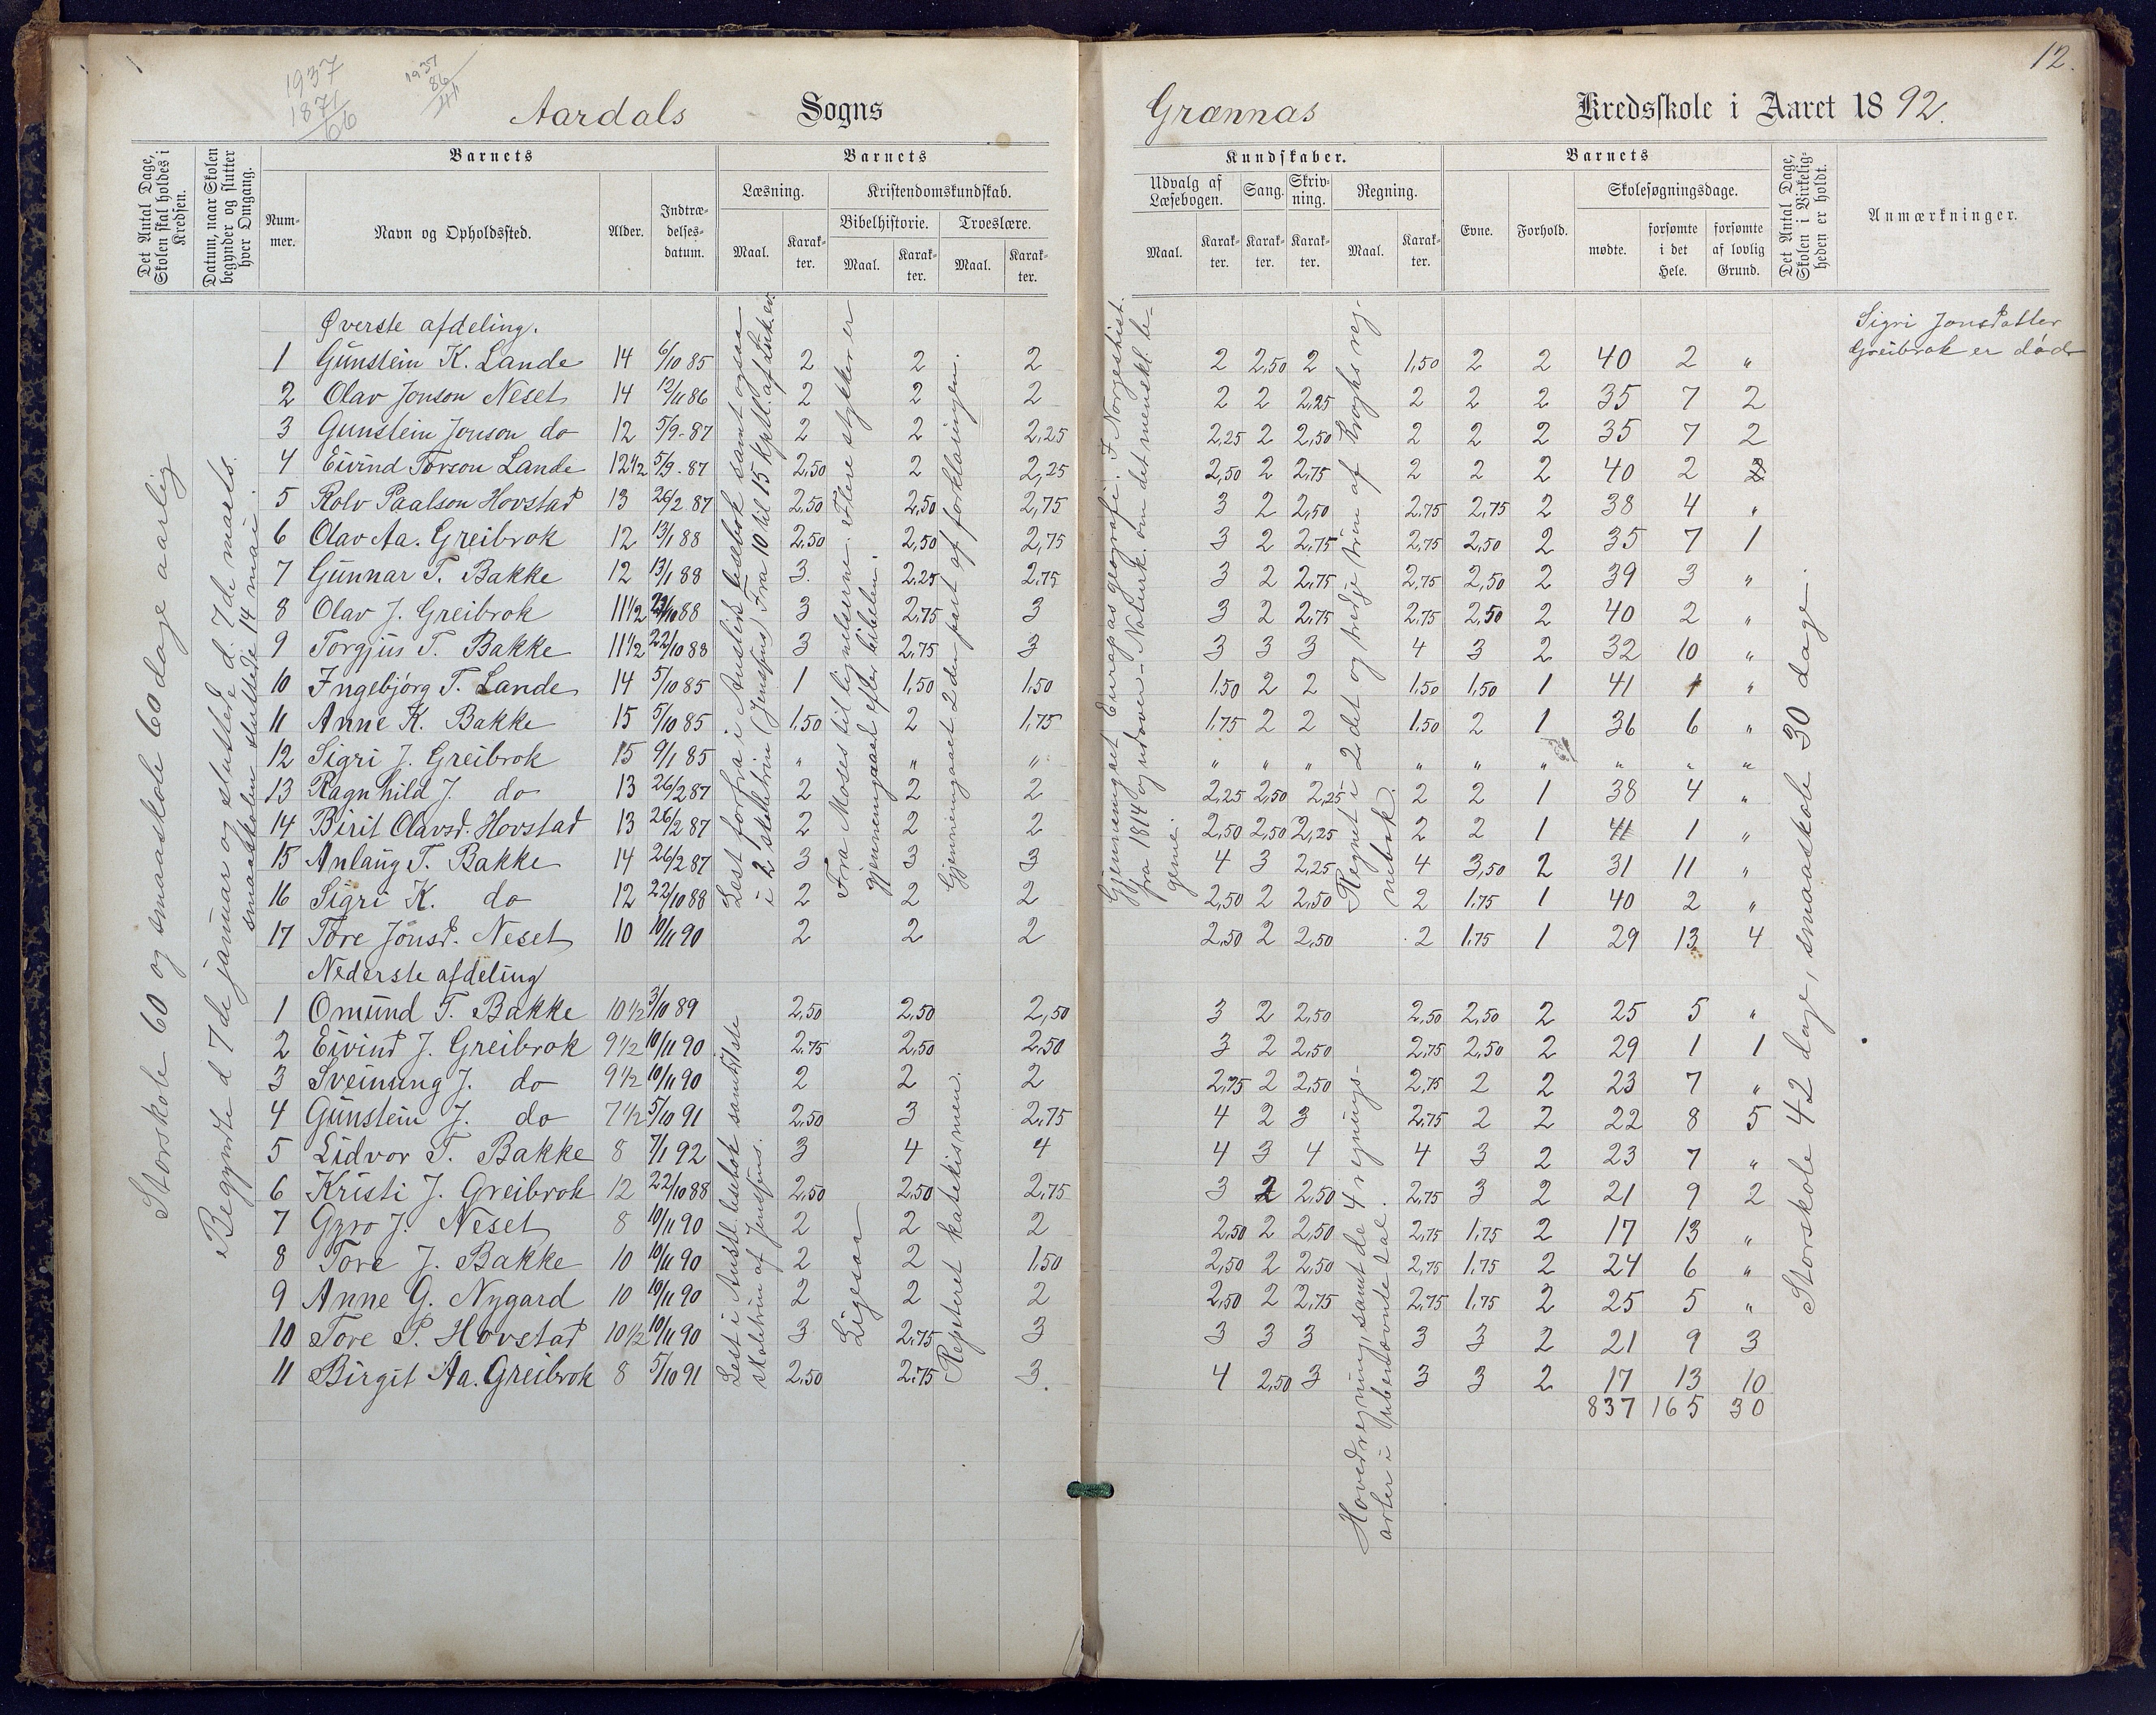 12.
1937
1871
66
1937
86
Aardals Sogns Grænnas Kredsskole i Aaret 1892.
Det Antal Dage, Skolen skal holdes i Kredsen.
Datum, naar Skolen begynder og slutter hver Omgang.
Barnets
Barnets
Kundskaber.
Barnets
Det Antal Dage, Skolen i Virkeligheden er holdt.
Anmærkninger.
Nummer.
Navn og Opholdssted.
Alder.
Indtrædelsesdatum.
Læsning.
Kristendomskundskab.
Bibelhistorie.
Troeslære.
Maal. Karakter. Maal. Karakter. Maal. Karakter.
Udvalg af Læsebogen. Sang. Skrivning. Regning.
Maal. Karakter. Karakter. Karakter. Maal. Karakter.
Evne. Forhold. Skolesøgningsdage.
mødte. forsømte i det Hele. forsømte af lovlig Grund.
Storskole 60 og smaaskole 60 dage aarlig
Begyndte d 7de januar og sluttede d. 7de marts.
smaaskolen sluttede 14 mai.
Øverste afdeling.
1 Gunstein K. Lande 14 6/10 85 2 2 2 2 2,50 2 1,50 2 2 40 2 "
2 Olav Jonson Neset 14 12/11 86 2 2 2 2 2 2,25 2 2 2 35 7 2
3 Gunstein Jonson do 12 5/9-87 2 2 2,25 2,25 2 2,50 2 2 2 35 7 2
4 Eivind Torson Lande 12 1/2 5/9-87 2,50 2 2,25 2,50 2 2,75 2 2 2 40 2
5 Rolv Paalson Hovstad 13 26/2 87 2,50 2,50 2,75 3 2 2,50 2,75 2,75 2 38 4 "
6 Olav Aa. Greibrok 12 13/1 88 2,50 2,50 2,75 3 2 2,75 2,75 2,50 2 35 7 1
7 Gunnar T. Bakke 12 13/1 88 3. 2,25 2,75 3 2 2,75 2,75 2,50 2 39 3 "
8 Olav J. Greibrok 11 1/2 22/10 88 3 2,75 3 3 2 2,75 2,75 2,50 2 40 2 "
9 Torgjus T. Bakke 11 1/2 22/10 88 3 2,75 3 3 3 3 4 3 2 32 10 "
10 Ingebjørg T. Lande 14 5/10 85 1 1,50 1,50 1,50 2 2 1,50 1,50 1 41 1 "
11 Anne K. Bakke 15 5/10 85 1,50 2 1,75 1,75 2 2 1,50 2 1 36 6 "
12 Sigri J. Greibrok 15 9/1 85 " " " " " " " " " " " "
13 Ragnhild J. do 13 26/2 87 2 2 2 2,25 2,50 2,25 2 2 1 38 4 "
14 Birit Olavsd. Hovstad 13 26/2 87 2 2 2 2,50 2,50 2,25 2 2 1 41 1 "
15 Anlaug T. Bakke 14 26/2 87 3 3 3 4 3 2,25 4 3,50 2 31 11 "
16 Sigri K. do 12 22/10 88 2 2 2 2,50 2 2,50 2 1,75 1 40 2 "
17 Tore Jonsd. Neset 10 10/11 90 2 2 2 2,50 2 2,50 2 1,75 1 29 13 4
Nederste afdeling
1 Omund T. Bakke 10 1/2 3/10 89 2,50 2,50 2,50 3 2 2,50 2,50 2,50 2 25 5 "
2 Eivind J. Greibrok 9 1/2 10/11 90 2,75 2,50 2,50 3 2 2,50 2,75 2,50 2 29 1 1
3 Sveinung J. do 9 1/2 10/11 90 2 2 2 2,75 2 2,50 2,75 2 2 23 7 "
4 Gunstein J. do 7 1/2 5/10 91 2,50 3 2,75 4 2 3 2,75 2 2 22 8 5
5 Lidvor T. Bakke 8 7/1 92 3 4 4 4 3 4 4 3 2 23 7 "
6 Kristi J. Greibrok 12 22/10 88 2,50 2,50 2,75 3 2 2,50 2,75 3 2 21 9 2
7 Gyro J. Neset 8 10/11 90 2 2 2 2,50 2 2,50 2,75 1,75 2 17 13 "
8 Tore J. Bakke 10 10/11 90 2 2 1,50 2,50 2 2,50 2,75 1,75 2 24 6 "
9 Anne G. Nygard 10 10/11 90 2 2 2 2,50 2 2,75 2,75 1,75 2 25 5 "
10 Tore P. Hovstad 10 1/2 10/11 90 3 2,75 3 3 3 3 3 3 2 21 9 3
11 Birgit Aa. Greibrok 8 5/10 91 2,50 2,75 3. 4 2,50 3 3 3 2 17 13 10
837 165 30
Lest forfra i Austlis lesebok samt ogsaa
i 2 skoletrin (Jensens) Fra 10 til 15 kptl. af Luk. ev.
Fra Moses til lignelserne. Flere stykker er
gjennemgaaet efter bibelen.
Gjennemgaaet 2den part af forklaringen.
Lest i Austl. lesebok samt 1ste
skoletrin af Jensens.
Ligesaa
Repeteret katekismen.
Gjennemgaaet Europas geografi. I Norgeshist.
fra 1814 og udover. Naturk. om det menskl. legeme.
Regnet i 2det og tredje trin af Kroghs regnebok.
Hovedregning, samt de 4 regningsarter i ubenævnte tal.
Storskole 42 dage, smaaskole 30 dage.
Sigri Jonsdatter
Greibrok er død